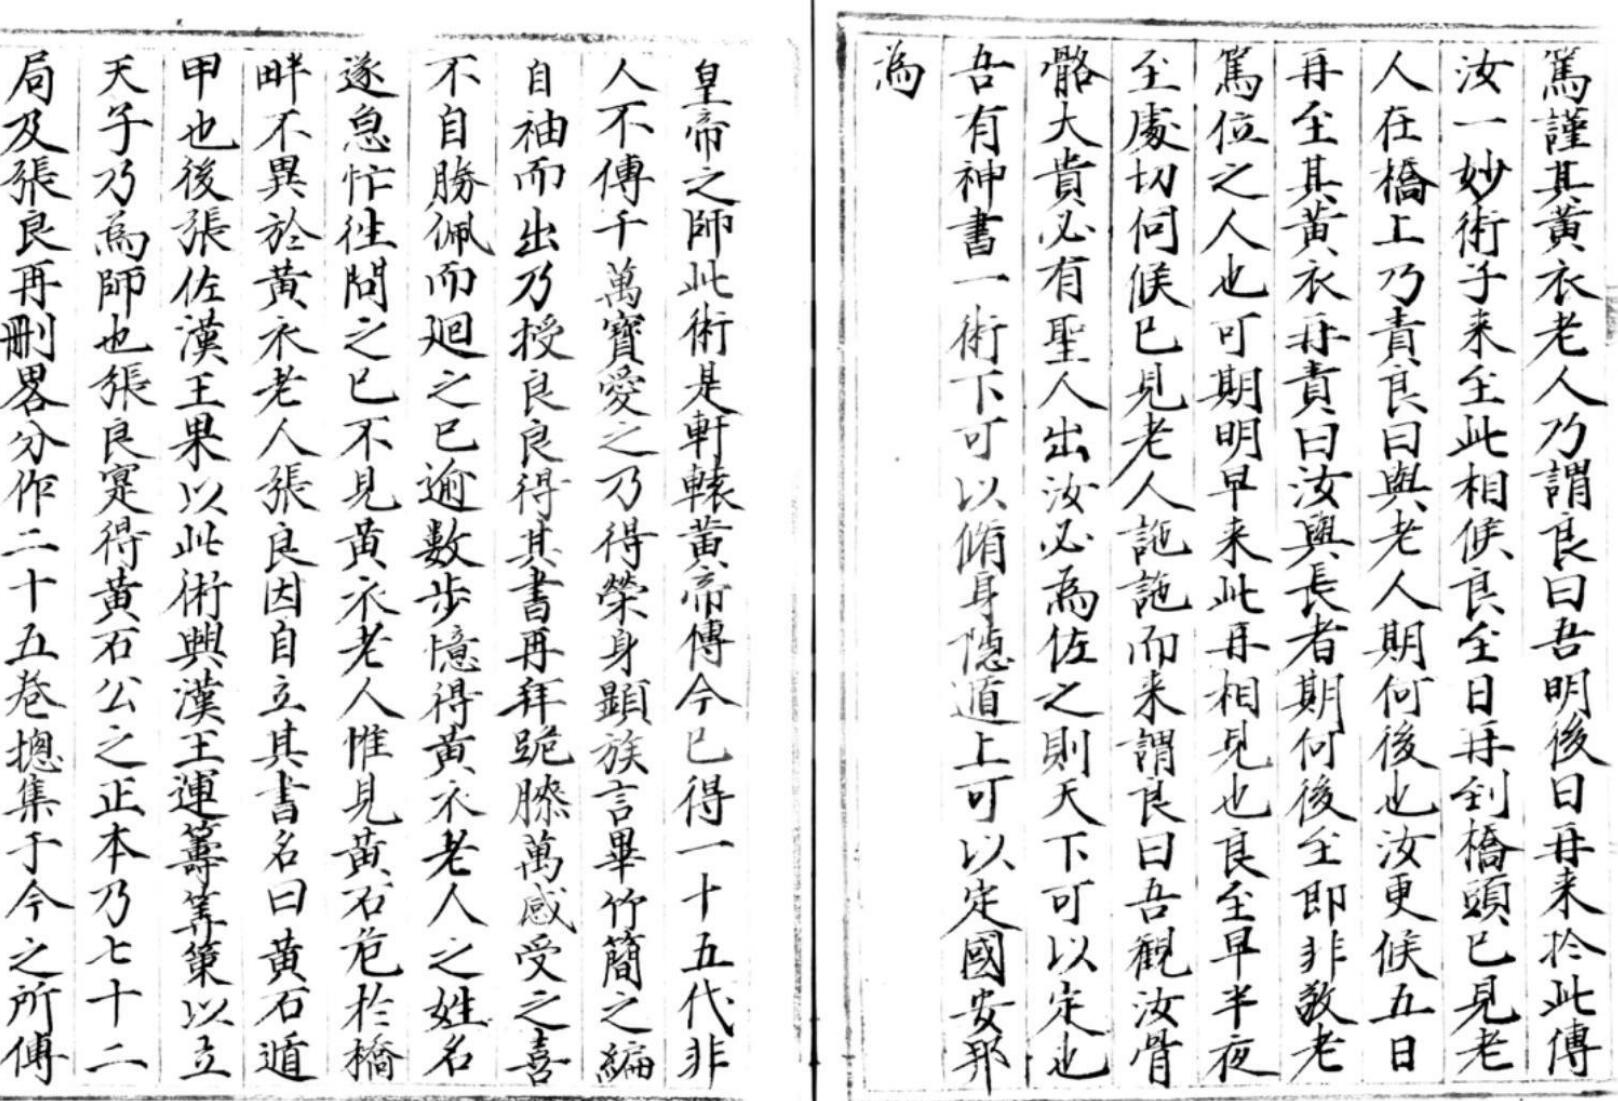 篤謹其黃衣老人乃謂良曰吾明後日再来扵此傳
汝一妙術子来至此相候良至日再到橋頭已見老
人在橋上乃責良曰與老人期何後也汝更候五日
再至其黃衣再責曰汝與長者期何後至即非敬老
篤位之人也可期明早来此再相見也良至早半夜
至處切伺候已見老人訑訑而来謂良曰吾觀汝骨
骼大貴必有聖人出汝必為佐之則天下可以定也
吾有神書一術下可以脩身隱遁上可以定國安邦
為
皇帝之師此術是軒轅黃帝傳今已得一十五代非
人不傳千萬寶愛之乃得榮身顯族言畢竹簡之編
自袖而出乃授良良得其書再拜跪膝萬感受之喜
不自勝佩而廻之已逾數步憶得黃衣老人之姓名
遂怠忙徃問之已不見黃衣老人惟見黃石危扵橋
畔不異於黃衣老人張良因自立其書名曰黃石遁
甲也後張佐漢王果以此術興漢王運籌筭策以立
天子乃為師也張良寔得黃石公之正本乃七十二
局及張良再刪畧分作二十五卷摠集于今之所傳